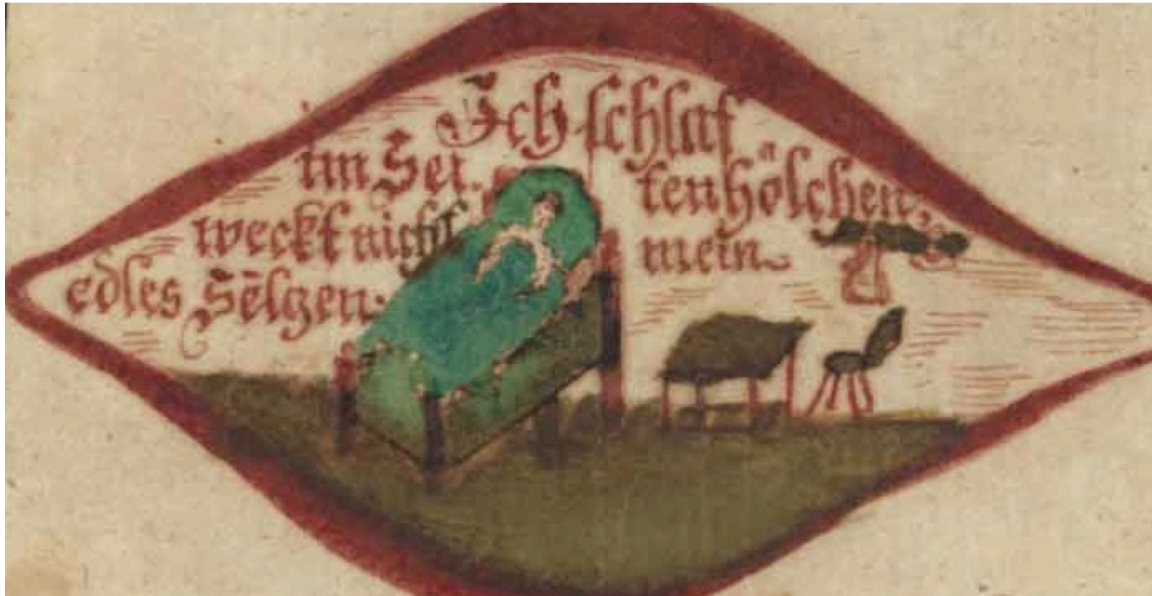 Ich schlaf
im Sei- tenhölchen,
weckt nicht mein
edles Sëlgen.